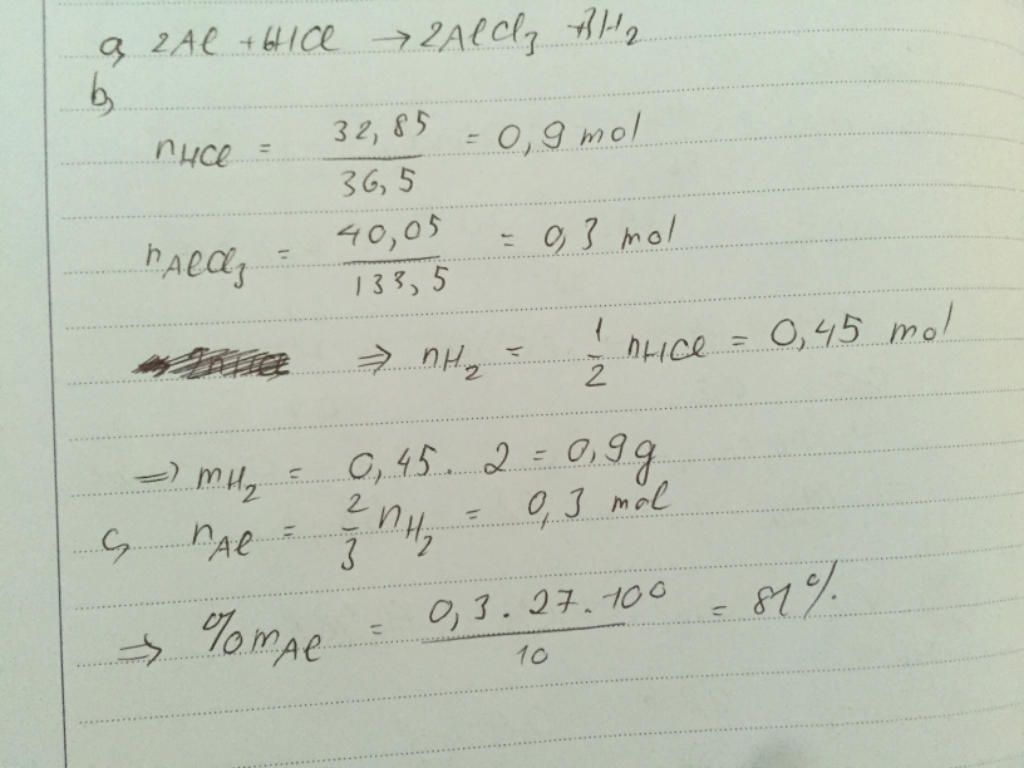 a, 2Al + 6HCl → 2AlCl₃ + 3H₂
b,
nHCl = 32,85 / 36,5 = 0,9 mol
nAlCl₃ = 40,05 / 133,5 = 0,3 mol
⇒ nH₂ = 1/2 nHCl = 0,45 mol
⇒ mH₂ = 0,45 . 2 = 0,9g
c, nAl = 2/3 nH₂ = 0,3 mol
⇒ %mAl = 0,3 . 27 . 100 / 10 = 81%